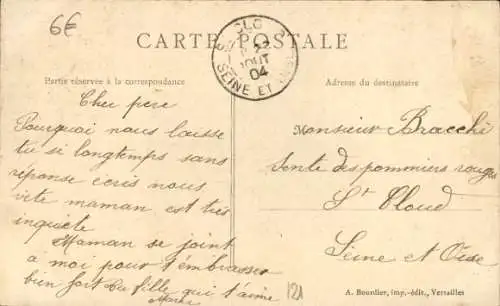 6€
CARTE POSTALE
Partie réservée à la correspondance
Adresse du destinataire
St CLO
AOUT
04
SEINE ET
Cher père
Pourquoi nous laisse
tu si longtemps sans
réponse écris nous
vite maman est très
inquiete
Maman se joint
a moi pour t'embrasser
bien fort Ta fille qui t'aime
Monsieur Bracchi
Sente des pommiers rouges
St Cloud
Seine et Oise
121
A. Bourdier, imp.-édit., Versailles